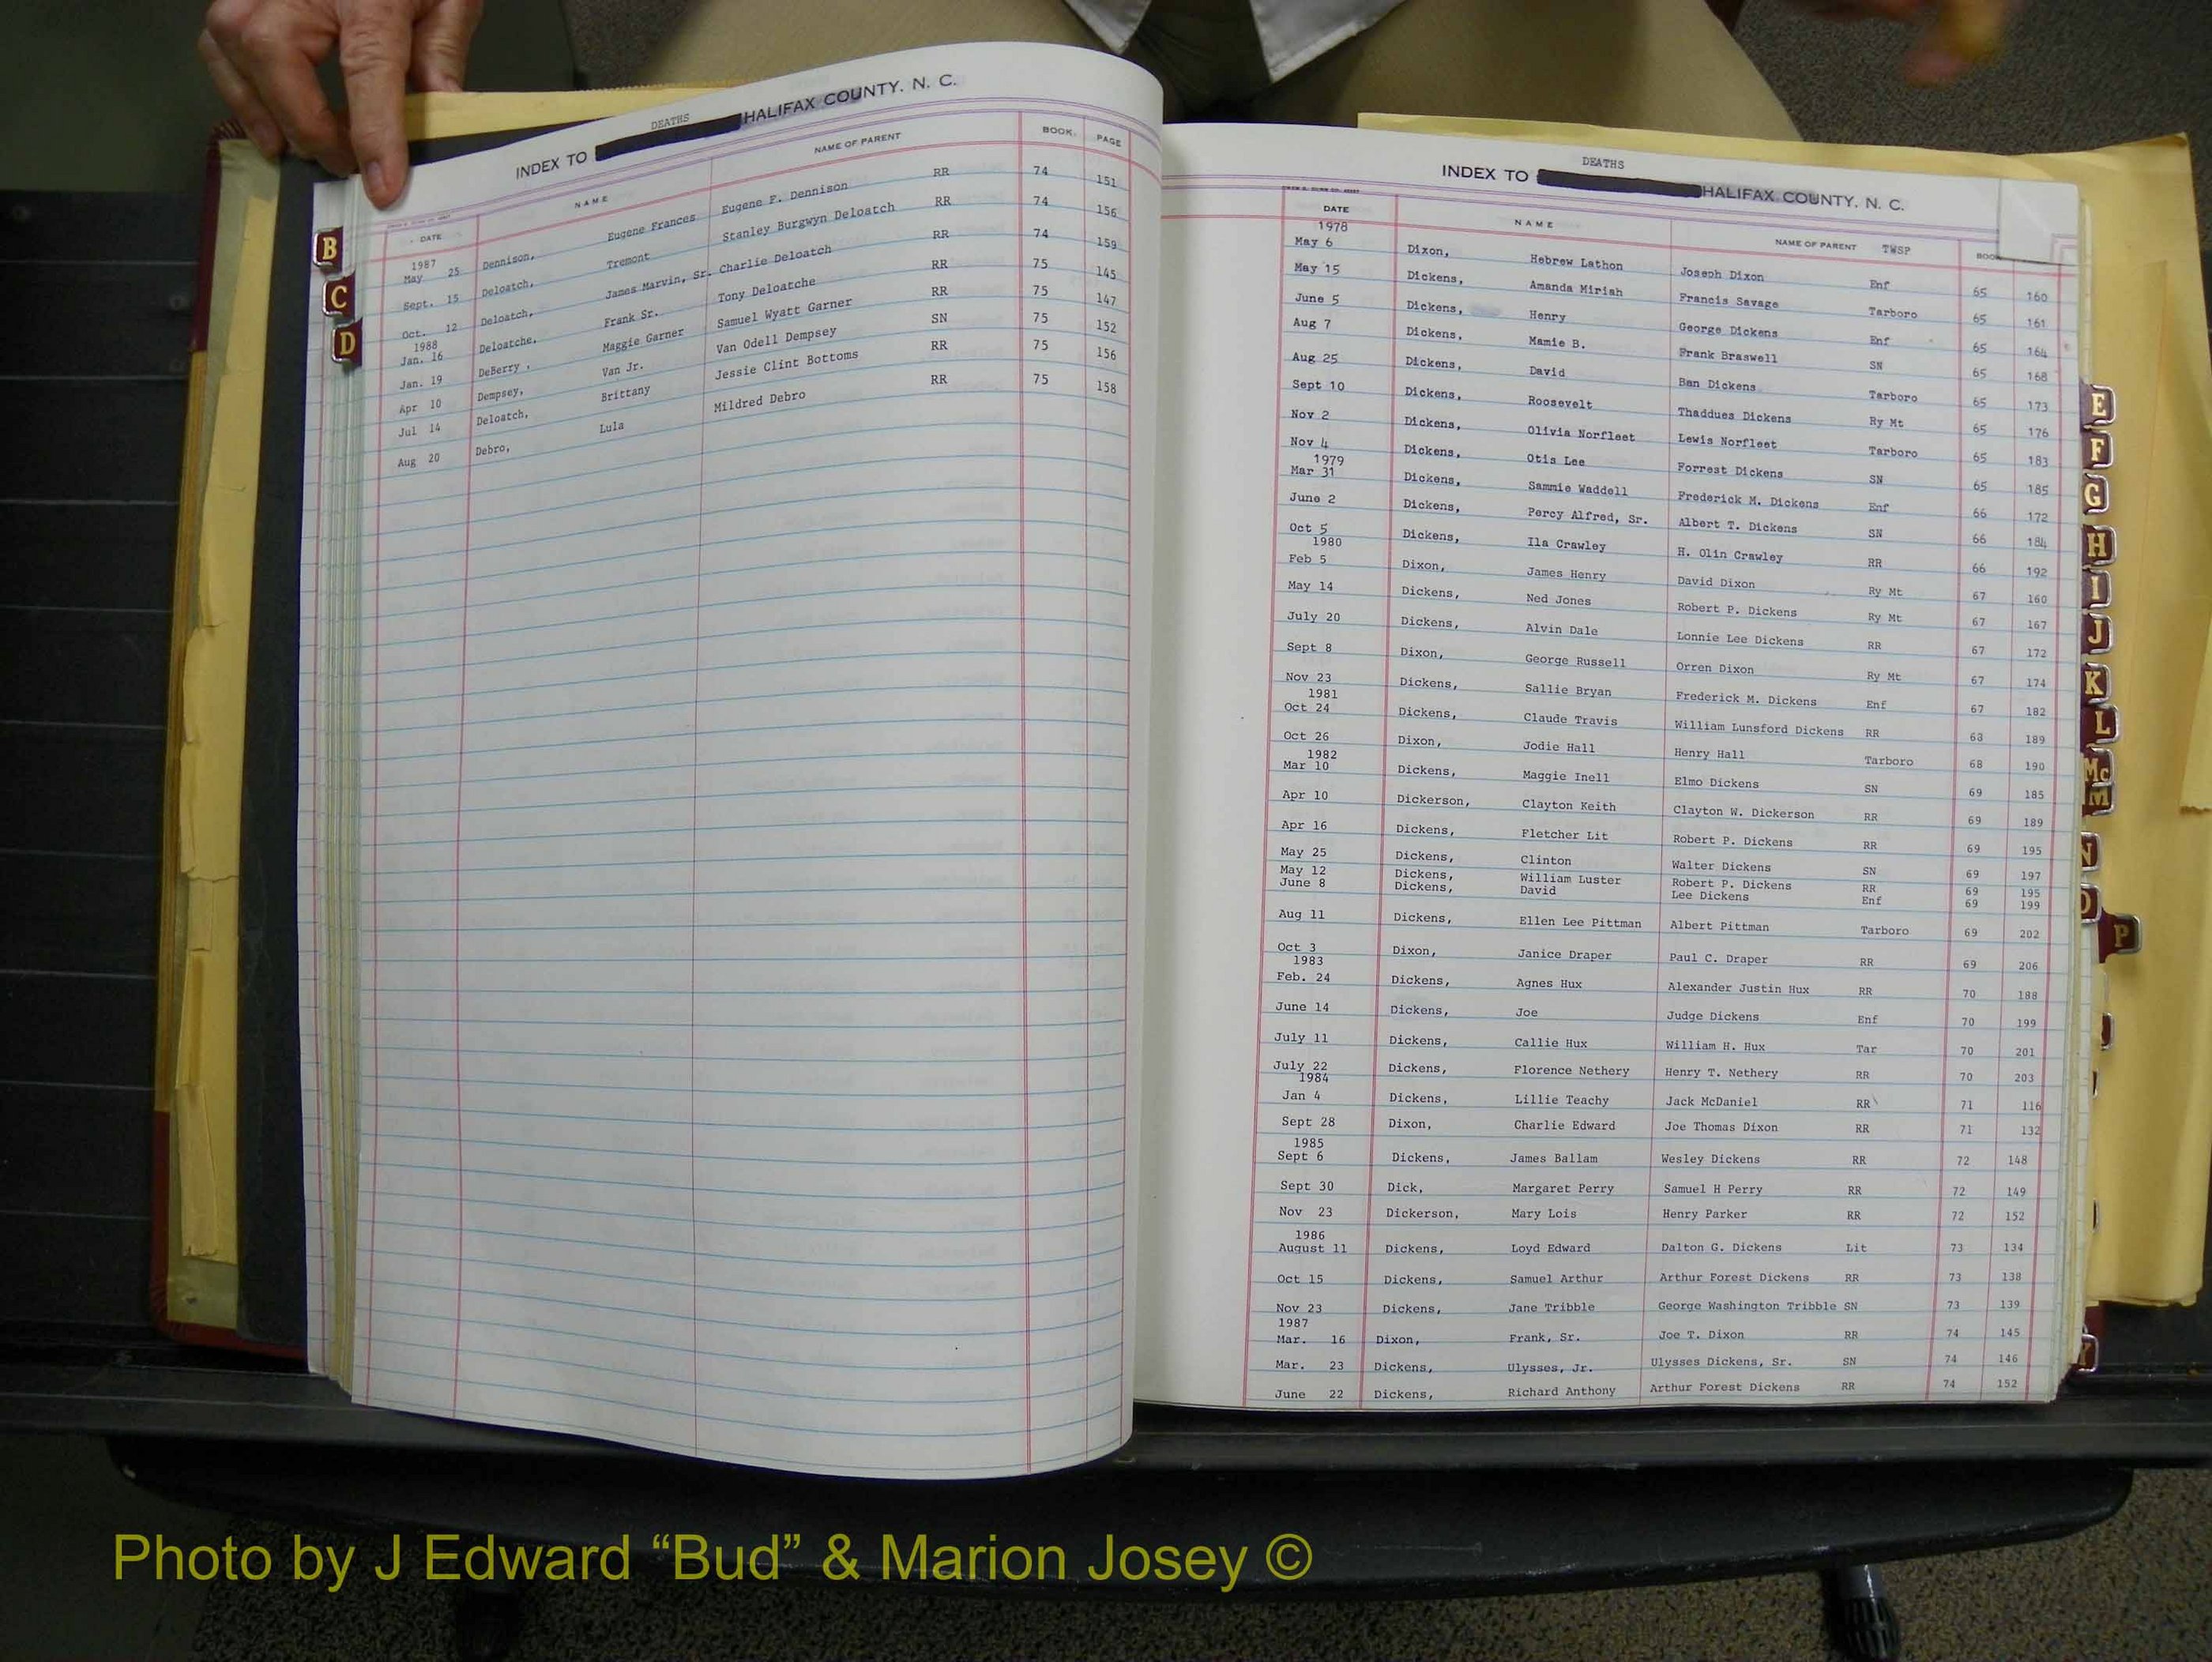 DEATHS
INDEX TO HALIFAX COUNTY. N. C.
DATE NAME NAME OF PARENT BOOK PAGE
1987
May 25 Dennison, Eugene Frances Eugene F. Dennison RR 74 151
Sept. 15 Deloatch, Tremont Stanley Burgwyn Deloatch RR 74 156
Oct. 12 Deloatch, James Marvin, Sr. Charlie Deloatch RR 74 159
1988
Jan. 16 Deloatche, Frank Sr. Tony Deloatche RR 75 145
Jan. 19 DeBerry, Maggie Garner Samuel Wyatt Garner RR 75 147
Apr 10 Dempsey, Van Jr. Van Odell Dempsey SN 75 152
Jul 14 Deloatch, Brittany Jessie Clint Bottoms RR 75 156
Aug 20 Debro, Lula Mildred Debro RR 75 158
B
C
D
DEATHS
INDEX TO HALIFAX COUNTY. N. C.
DATE NAME NAME OF PARENT TWSP BOOK
1978
May 6 Dixon, Hebrew Lathon Joseph Dixon Enf 65 160
May 15 Dickens, Amanda Miriah Francis Savage Tarboro 65 161
June 5 Dickens, Henry George Dickens Enf 65 164
Aug 7 Dickens, Mamie B. Frank Braswell SN 65 168
Aug 25 Dickens, David Ban Dickens Tarboro 65 173
Sept 10 Dickens, Roosevelt Thaddues Dickens Ry Mt 65 176
Nov 2 Dickens, Olivia Norfleet Lewis Norfleet Tarboro 65 183
Nov 4 Dickens, Otis Lee Forrest Dickens SN 65 185
1979
Mar 31 Dickens, Sammie Waddell Frederick M. Dickens Enf 66 172
June 2 Dickens, Percy Alfred, Sr. Albert T. Dickens SN 66 184
Oct 5 Dickens, Ila Crawley H. Olin Crawley RR 66 192
1980
Feb 5 Dixon, James Henry David Dixon Ry Mt 67 160
May 14 Dickens, Ned Jones Robert P. Dickens Ry Mt 67 167
July 20 Dickens, Alvin Dale Lonnie Lee Dickens RR 67 172
Sept 8 Dixon, George Russell Orren Dixon Ry Mt 67 174
Nov 23 Dickens, Sallie Bryan Frederick M. Dickens Enf 67 182
1981
Oct 24 Dickens, Claude Travis William Lunsford Dickens RR 68 189
Oct 26 Dixon, Jodie Hall Henry Hall Tarboro 68 190
1982
Mar 10 Dickens, Maggie Inell Elmo Dickens SN 69 185
Apr 10 Dickerson, Clayton Keith Clayton W. Dickerson RR 69 189
Apr 16 Dickens, Fletcher Lit Robert P. Dickens RR 69 195
May 25 Dickens, Clinton Walter Dickens SN 69 197
May 12 Dickens, William Luster Robert P. Dickens RR 69 195
June 8 Dickens, David Lee Dickens Enf 69 199
Aug 11 Dickens, Ellen Lee Pittman Albert Pittman Tarboro 69 202
Oct 3 Dixon, Janice Draper Paul C. Draper RR 69 206
1983
Feb. 24 Dickens, Agnes Hux Alexander Justin Hux RR 70 188
June 14 Dickens, Joe Judge Dickens Enf 70 199
July 11 Dickens, Callie Hux William H. Hux Tar 70 201
July 22 Dickens, Florence Nethery Henry T. Nethery RR 70 203
1984
Jan 4 Dickens, Lillie Teachy Jack McDaniel RR 71 116
Sept 28 Dixon, Charlie Edward Joe Thomas Dixon RR 71 132
1985
Sept 6 Dickens, James Ballam Wesley Dickens RR 72 148
Sept 30 Dick, Margaret Perry Samuel H Perry RR 72 149
Nov 23 Dickerson, Mary Lois Henry Parker RR 72 152
1986
August 11 Dickens, Loyd Edward Dalton G. Dickens Lit 73 134
Oct 15 Dickens, Samuel Arthur Arthur Forest Dickens RR 73 138
Nov 23 Dickens, Jane Tribble George Washington Tribble SN 73 139
1987
Mar. 16 Dixon, Frank, Sr. Joe T. Dixon RR 74 145
Mar. 23 Dickens, Ulysses, Jr. Ulysses Dickens, Sr. SN 74 146
June 22 Dickens, Richard Anthony Arthur Forest Dickens RR 74 152
E
F
G
H
I
J
K
L
Mc
M
N
O
P
Photo by J Edward “Bud” & Marion Josey ©